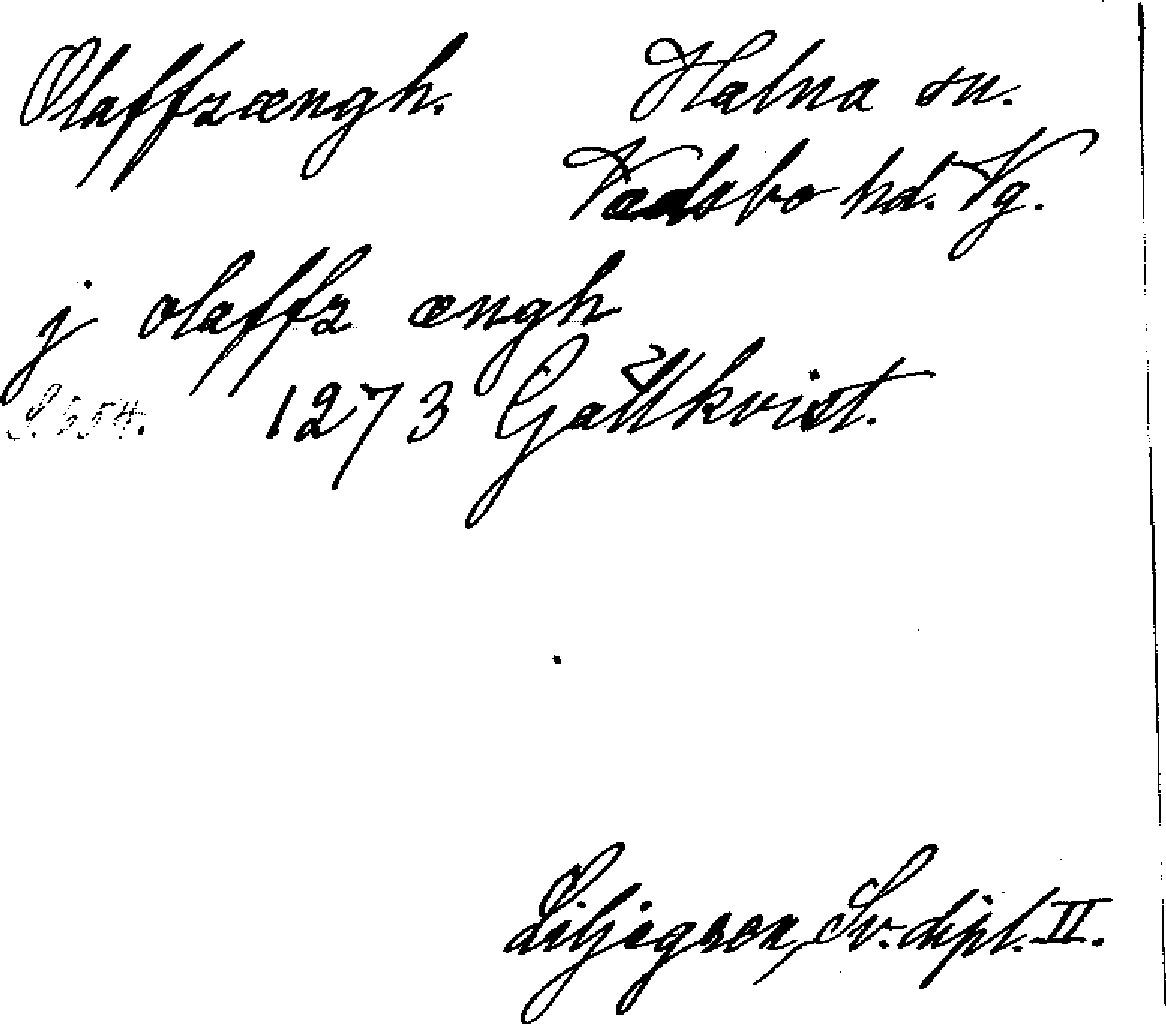 Olaffzængh. Halna sn.
Vadsbo hd. Vg.
j olaffz ængh
S. 554. 1273 Gällkvist.
Liljegren, Sv. dipl. II.